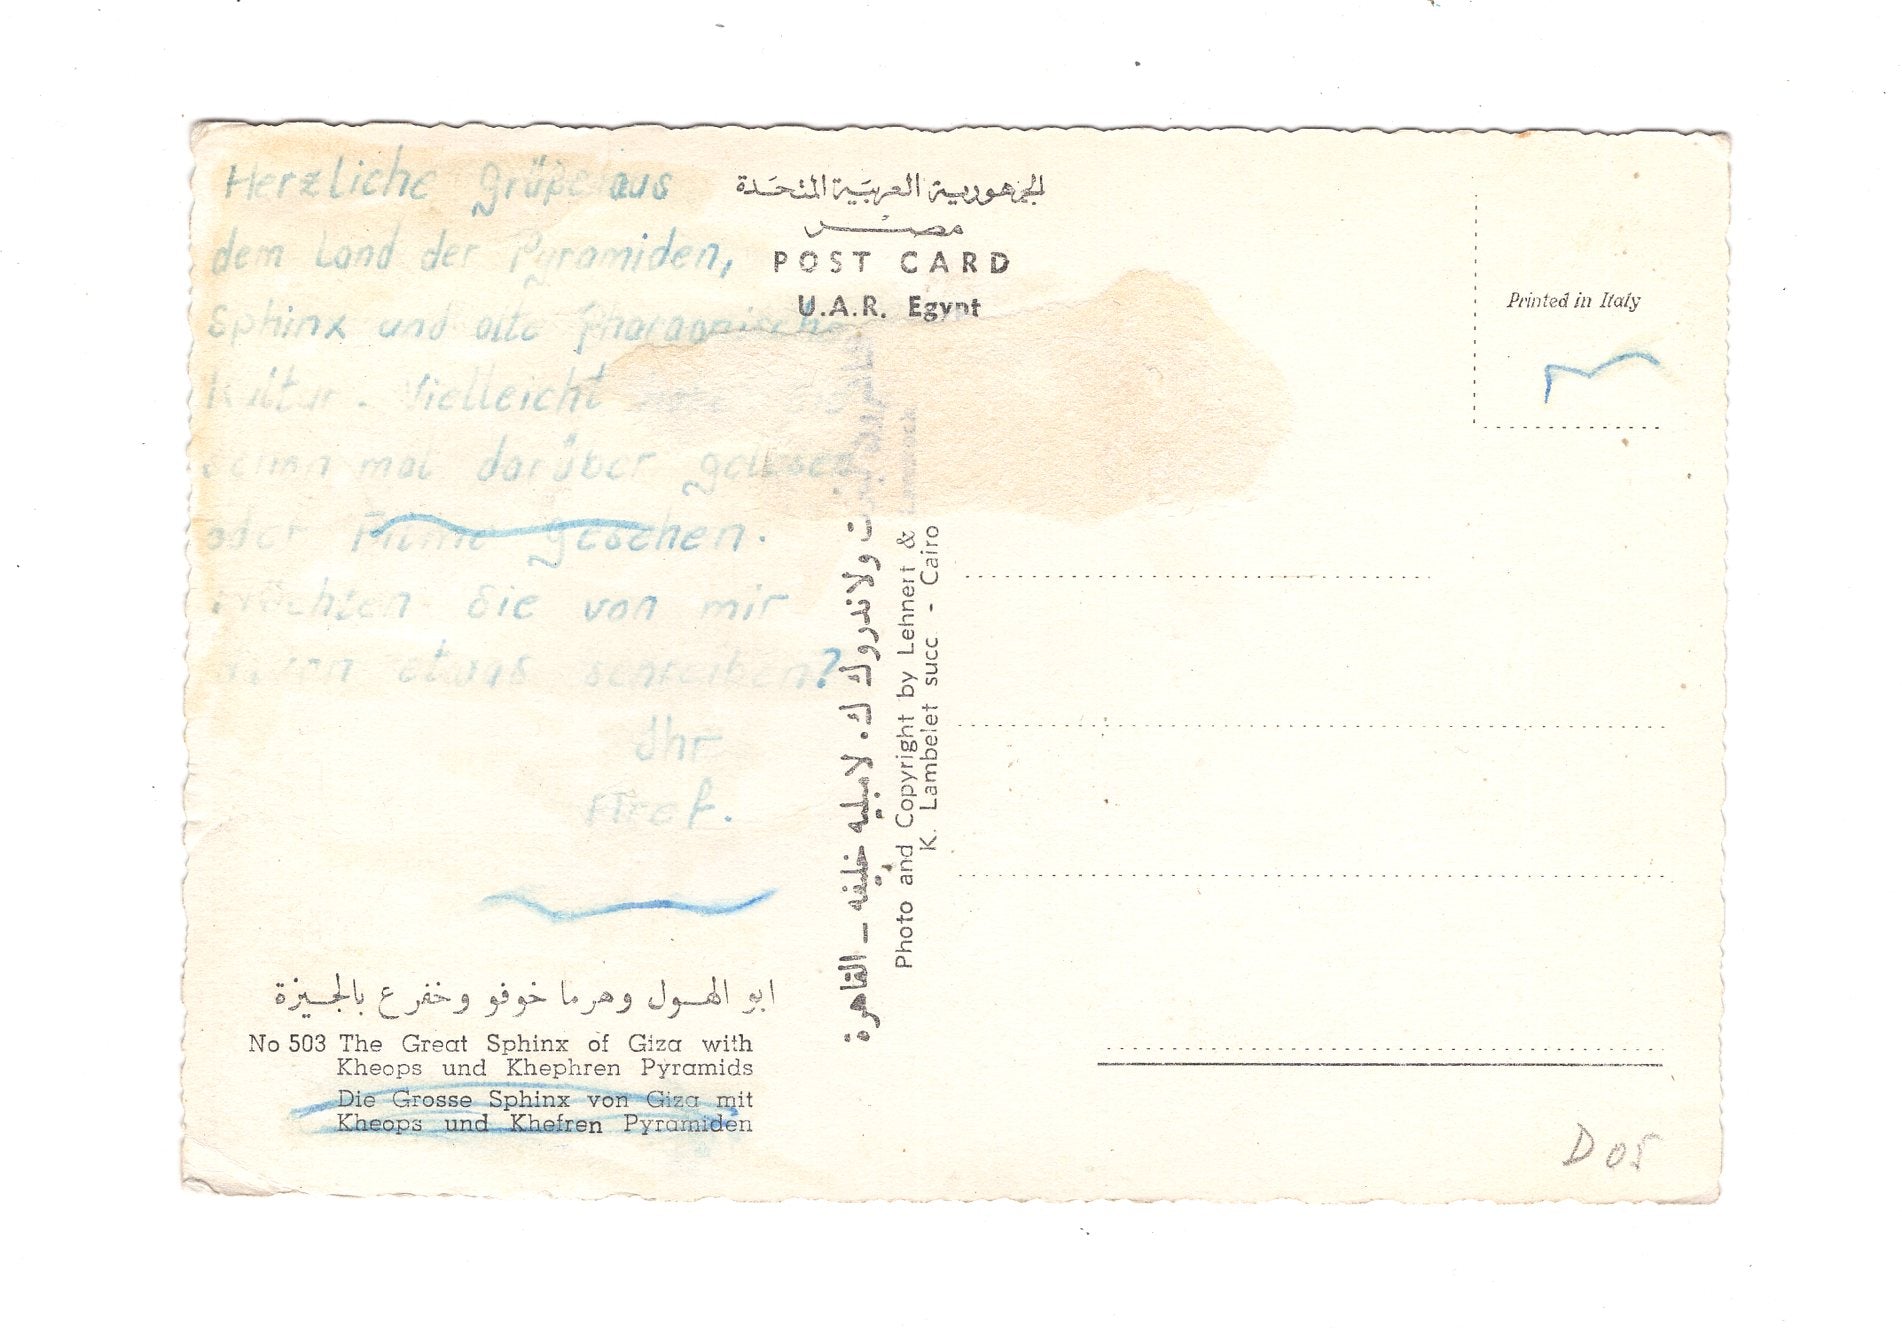 Herzliche Grüße aus
dem Land der Pyramiden,
Sphinx und alte Pharaonische
Kultur. Vielleicht
mal darüber gelesen
oder Filme gesehen.
Möchten Sie von mir
etwas schreiben?
Ihr
الجمهورية العربية المتحدة
مصر
POST CARD
U.A.R. Egypt
Printed in Italy
ولاندروك ك. لامبليه خليفه – القاهرة
Photo and Copyright by Lehnert & Landrock
K. Lambelet succ - Cairo
ابو الهول وهرما خوفو وخفرع بالجيزة
No 503 The Great Sphinx of Giza with
Kheops und Khephren Pyramids
Die Grosse Sphinx von Giza mit
Kheops und Khefren Pyramiden
D 05